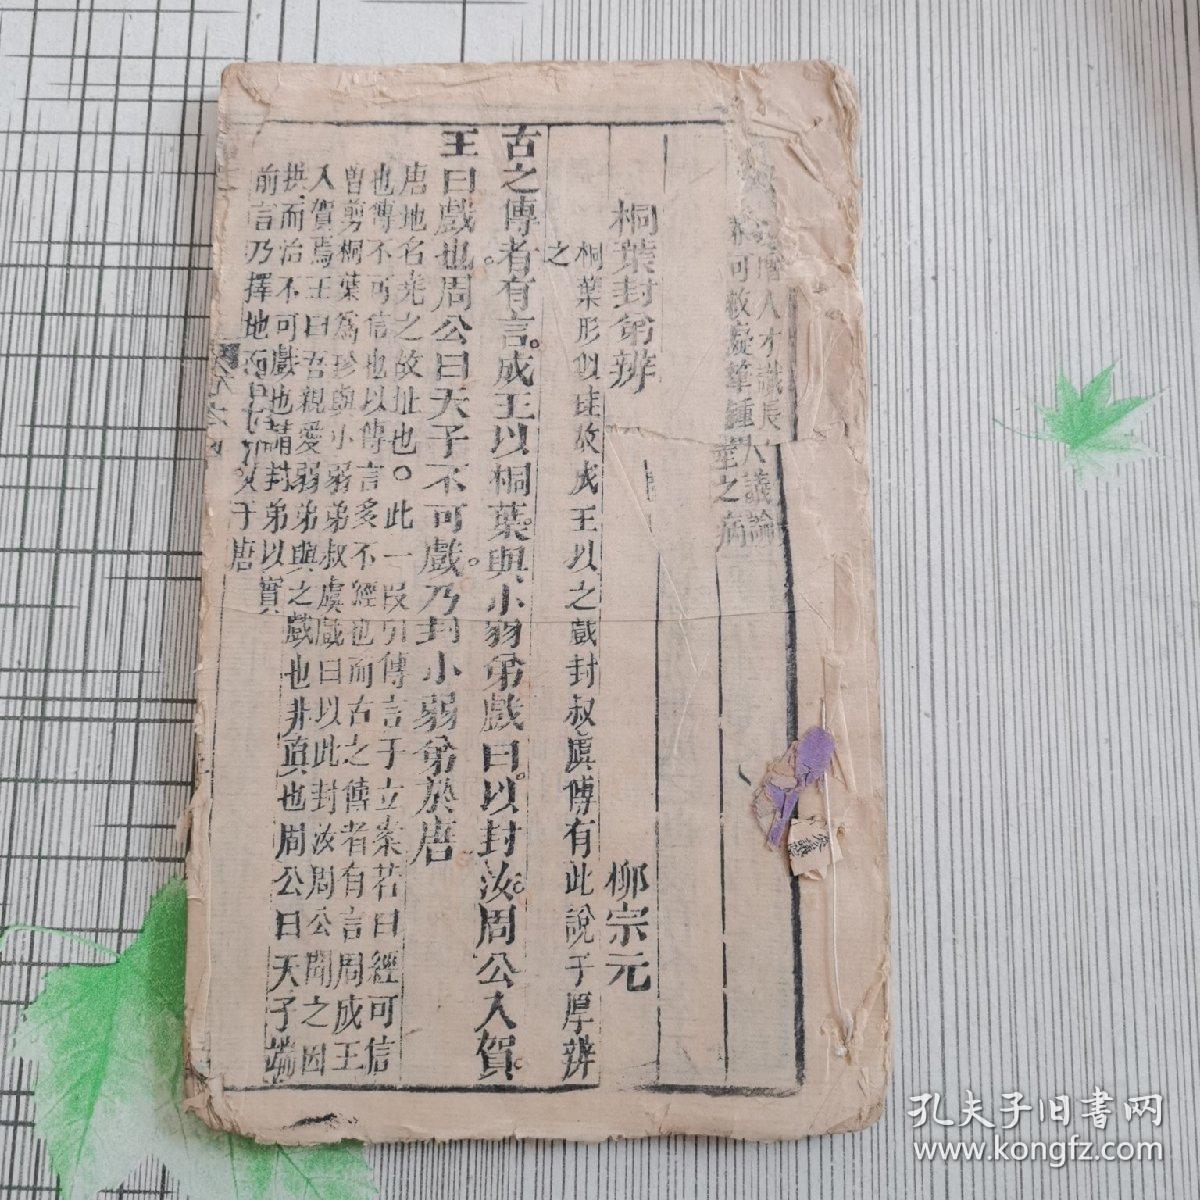 人才識長人議論
可救
之病
桐葉封弟辨
柳宗元
桐葉形似珪故成王以之戲封叔虞傳有此說子厚辨
之
古之傳者有言成王以桐葉與小弱弟戲曰以封汝周公入賀
王曰戲也周公曰天子不可戲乃封小弱弟於唐
唐地名堯之故址也○此一段引傳言于立案若曰經可信
也傳不可信也以傳言多不經也而古之傳者有言周成王
曾剪桐葉爲珍與小弱弟叔虞戲曰以此封汝周公聞之因
入賀焉王曰吾親愛弱弟與之戲也非真也周公曰天子端
拱而治不可戲也請封弟以實
前言乃擇地而于唐
孔夫子旧書网
www.kongfz.com